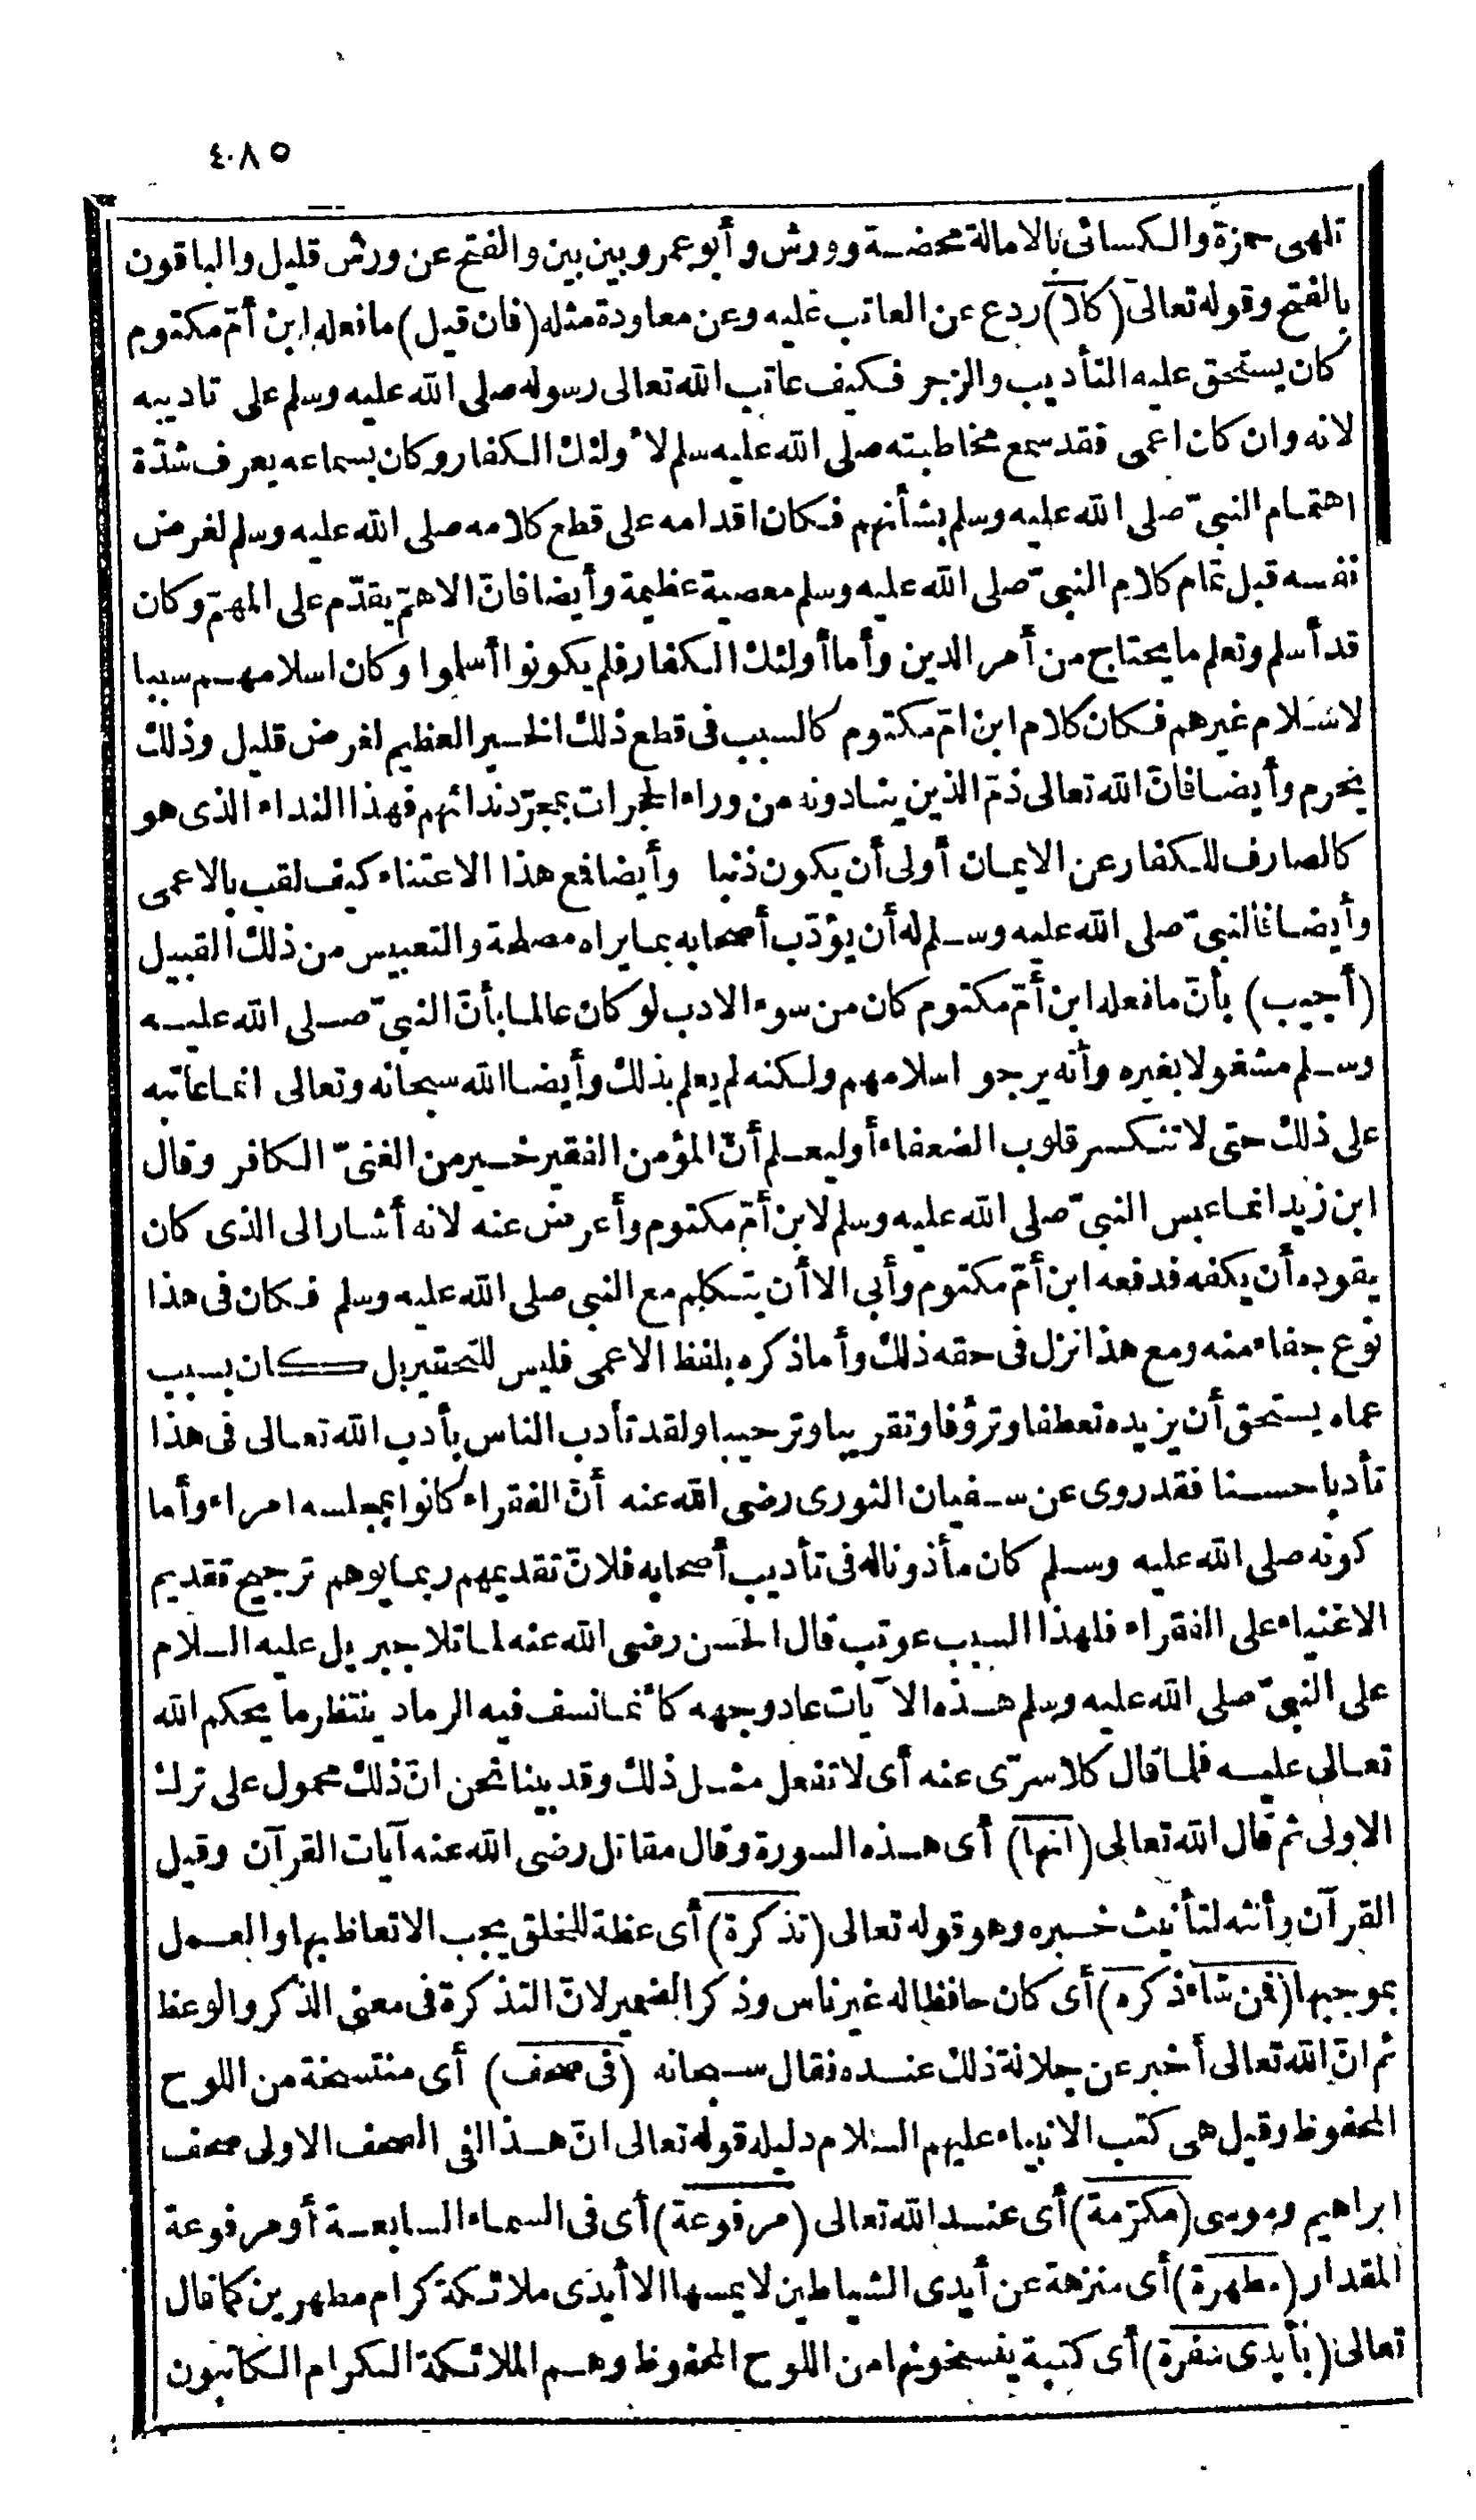 ٤٠٨٥
تلهى حمزة والكسائى بالامالة محضة وورش وأبو عمرو بين بين والفتح عن ورش قليل والباقون
بالفتح وقوله تعالى (كلا) ردع عن العاتب عليه وعن معاودة مثله (فان قيل) ما فعله ابن أمّ مكتوم
كان يستحق عليه التأديب والزجر فكيف عاتب الله تعالى رسوله صلى الله عليه وسلم على تاديبه
لانه وان كان اعمى فقد سمع مخاطبته صلى الله عليه سلم لأولئك الكفار وكان بسماعه يعرف شدّة
اهتمام النبىّ صلى الله عليه وسلم بشأنهم فكان اقدامه على قطع كلامه صلى الله عليه وسلم لغرض
نفسه قبل تمام كلام النبىّ صلى الله عليه وسلم معصية عظيمة وأيضا فانّ الاهمّ يقدّم على المهمّ وكان
قد أسلم وتعلم ما يحتاج من أمر الدين وأما أولئك الكفار فلم يكونوا أسلموا وكان اسلامهم سببا
لاسلام غيرهم فكان كلام ابن امّ مكتوم كالسبب فى قطع ذلك الخير العظيم لغرض قليل وذلك
يحرم وأيضا فانّ الله تعالى ذمّ الذين ينادونه من وراء الحجرات بمجرّد ندائهم فهذا النداء الذى هو
كالصارف للكفار عن الايمان أولى أن يكون ذنبا وأيضا فمع هذا الاعتناء كيف لقب بالاعمى
وأيضا فالنبىّ صلى الله عليه وسلم له أن يؤدّب أصحابه بما يراه مصلحة والتعبيس من ذلك القبيل
(أجيب) بأنّ ما فعله ابن أمّ مكتوم كان من سوء الادب لو كان عالما بأنّ النبىّ صلى الله عليه
وسلم مشغولا بغيره وأنه يرجو اسلامهم ولكنه لم يعلم بذلك وأيضا الله سبحانه وتعالى انما عاتبه
على ذلك حتى لا تنكسر قلوب الضعفاء أو ليعلم أنّ المؤمن الفقير خير من الغنىّ الكافر وقال
ابن زيد انما عبس النبىّ صلى الله عليه وسلم لابن أمّ مكتوم وأعرض عنه لانه أشار الى الذى كان
يقوده أن يكفه فدفعه ابن أمّ مكتوم وأبى الا أن يتكلم مع النبى صلى الله عليه وسلم فكان فى هذا
نوع جفاء منه ومع هذا نزل فى حقه ذلك وأما ذكره بلفظ الاعمى فليس للتحقير بل كان بسبب
عماه يستحق أن يزيده تعطفا وترؤفا وتقريبا وترحيبا ولقد تأدب الناس بأدب الله تعالى فى هذا
تأدبا حسنا فقد روى عن سفيان الثورى رضى الله عنه أنّ الفقراء كانوا بمجلسه امراء وأما
كونه صلى الله عليه وسلم كان مأذونا له فى تأديب أصحابه فلانّ تقديمهم ربما يوهم ترجيح تقديم
الاغنياء على الفقراء فلهذا السبب عوتب قال الحسن رضى الله عنه لما تلا جبريل عليه السلام
على النبىّ صلى الله عليه وسلم هذه الآيات عاد وجهه كأنما نسف فيه الرماد ينتظر ما يحكم الله
تعالى عليه فلما قال كلا سرّى عنه أى لا تفعل مثل ذلك وقد بينا نحن انّ ذلك محمول على ترك
الاولى ثم قال الله تعالى (انها) أى هذه السورة وقال مقاتل رضى الله عنه آيات القرآن وقيل
القرآن وأنثه لتأنيث خبره وهو قوله تعالى (تذكرة) أى عظة للخلق يجب الاتعاظ بها والعمل
بموجبها (فمن شاء ذكره) أى كان حافظا له غير ناس وذكر الضمير لانّ التذكرة فى معنى الذكر والوعظ
ثم انّ الله تعالى أخبر عن جلالة ذلك عنده فقال سبحانه (فى صحف) أى منتسخة من اللوح
المحفوظ وقيل هى كتب الانبياء عليهم السلام دليله قوله تعالى انّ هذا لفى الصحف الاولى صحف
ابراهيم وموسى (مكرّمة) أى عند الله تعالى (مرفوعة) أى فى السماء السابعة أو مرفوعة
المقدار (مطهرة) أى منزهة عن أيدى الشياطين لا يمسها الا أيدى ملائكة كرام مطهرين كما قال
تعالى (بأيدى سفرة) أى كتبة ينسخونها من اللوح المحفوظ وهم الملائكة الكرام الكاتبون